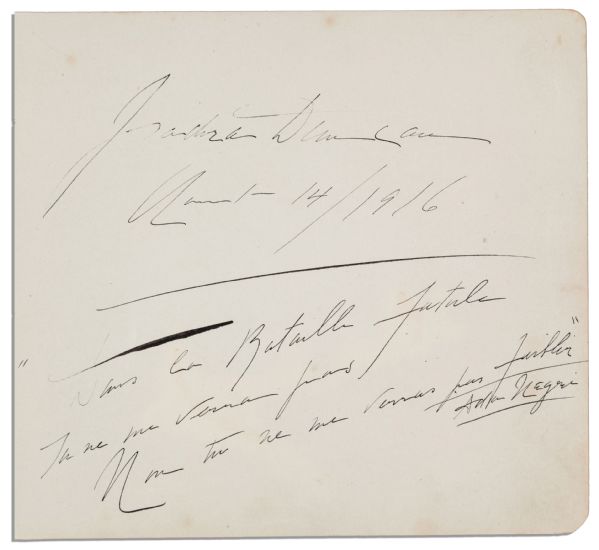 Isadora Duncan
August 14/1916
"Dans la Bataille fatale
Tu ne me verras pas
Non tu ne me verras pas faiblir"
Ada Negri